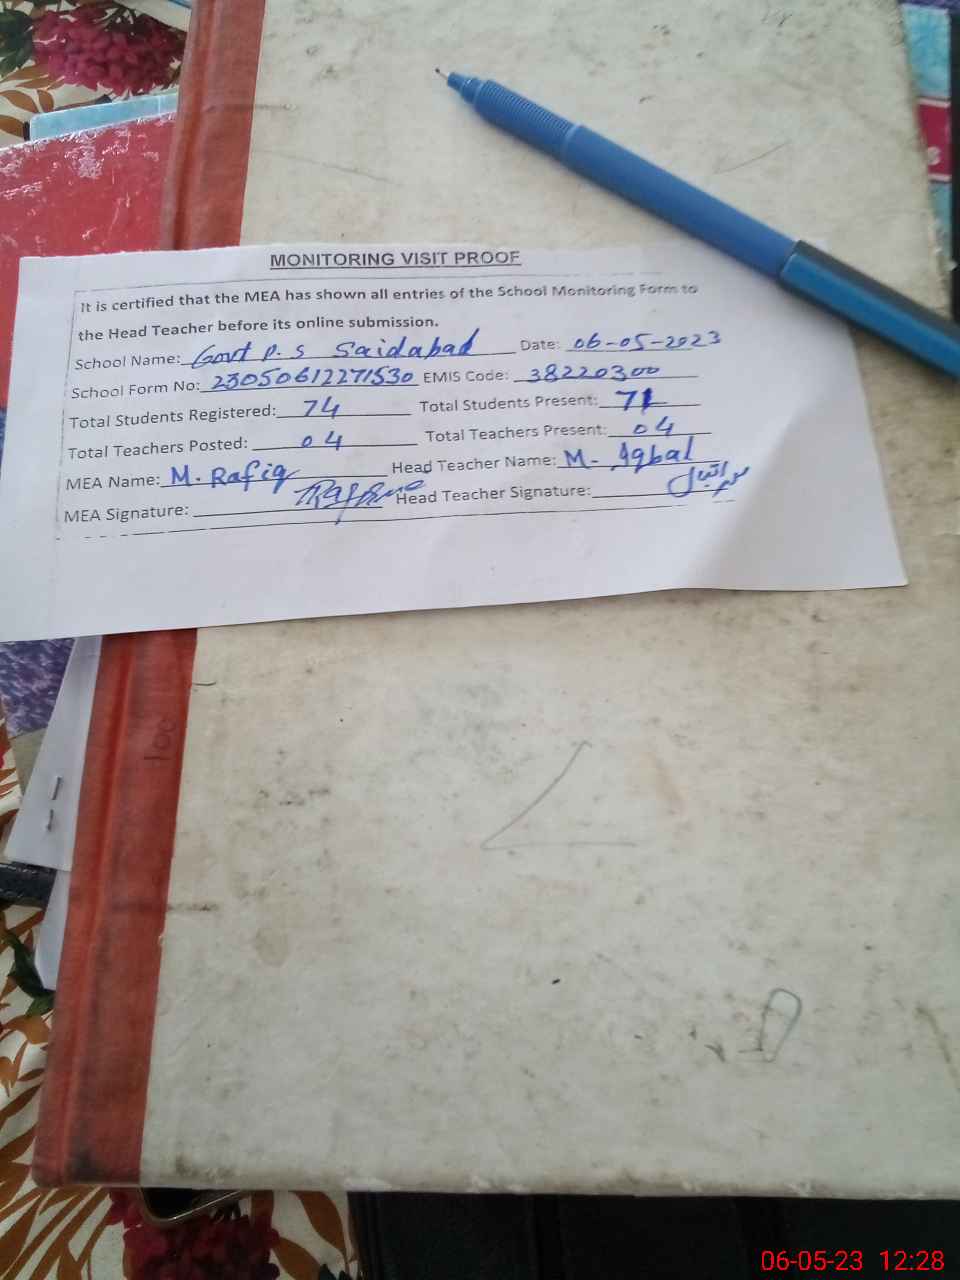 MONITORING VISIT PROOF
It is certified that the MEA has shown all entries of the School Monitoring Form to
the Head Teacher before its online submission.
School Name: Govt P. S Saidabad Date: 06-05-2023
School Form No: 23050612271530 EMIS Code: 38220300
Total Students Registered: 74 Total Students Present: 71
Total Teachers Posted: 04 Total Teachers Present: 04
MEA Name: M. Rafiq Head Teacher Name: M. Iqbal
MEA Signature: Head Teacher Signature: محمد اقبال
100
06-05-23 12:28